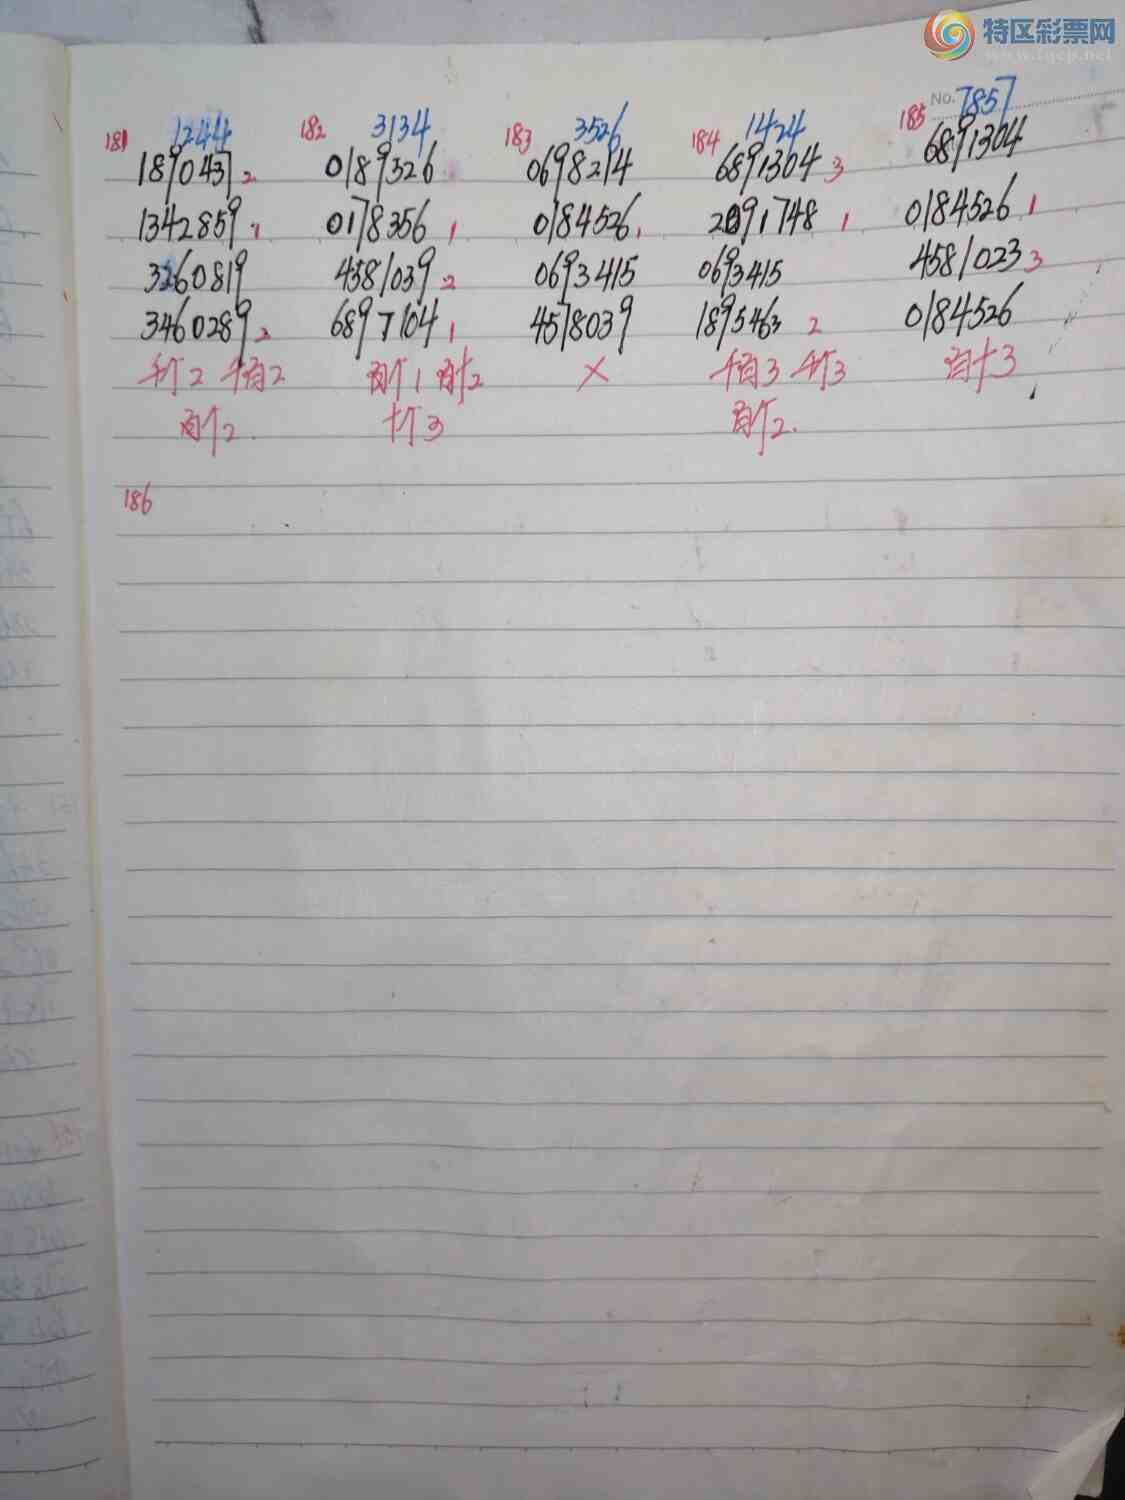 特区彩票网
www.tqcp.net
No.
181 1244
1890437 2
1342859 1
3260819
3460289 2
千个2 千百2
百个2
182 3134
0189326
0178356 1
4581039 2
6897104 1
百个1 百十2
十个3
183 3526
0698214
0184526 1
0693415
4578039
×
184 1424
6891304 3
2091748 1
0693415
1895463 2
千百3 千个3
百个2
185 7857
6891304
0184526 1
4581023 3
0184526
百十3
186